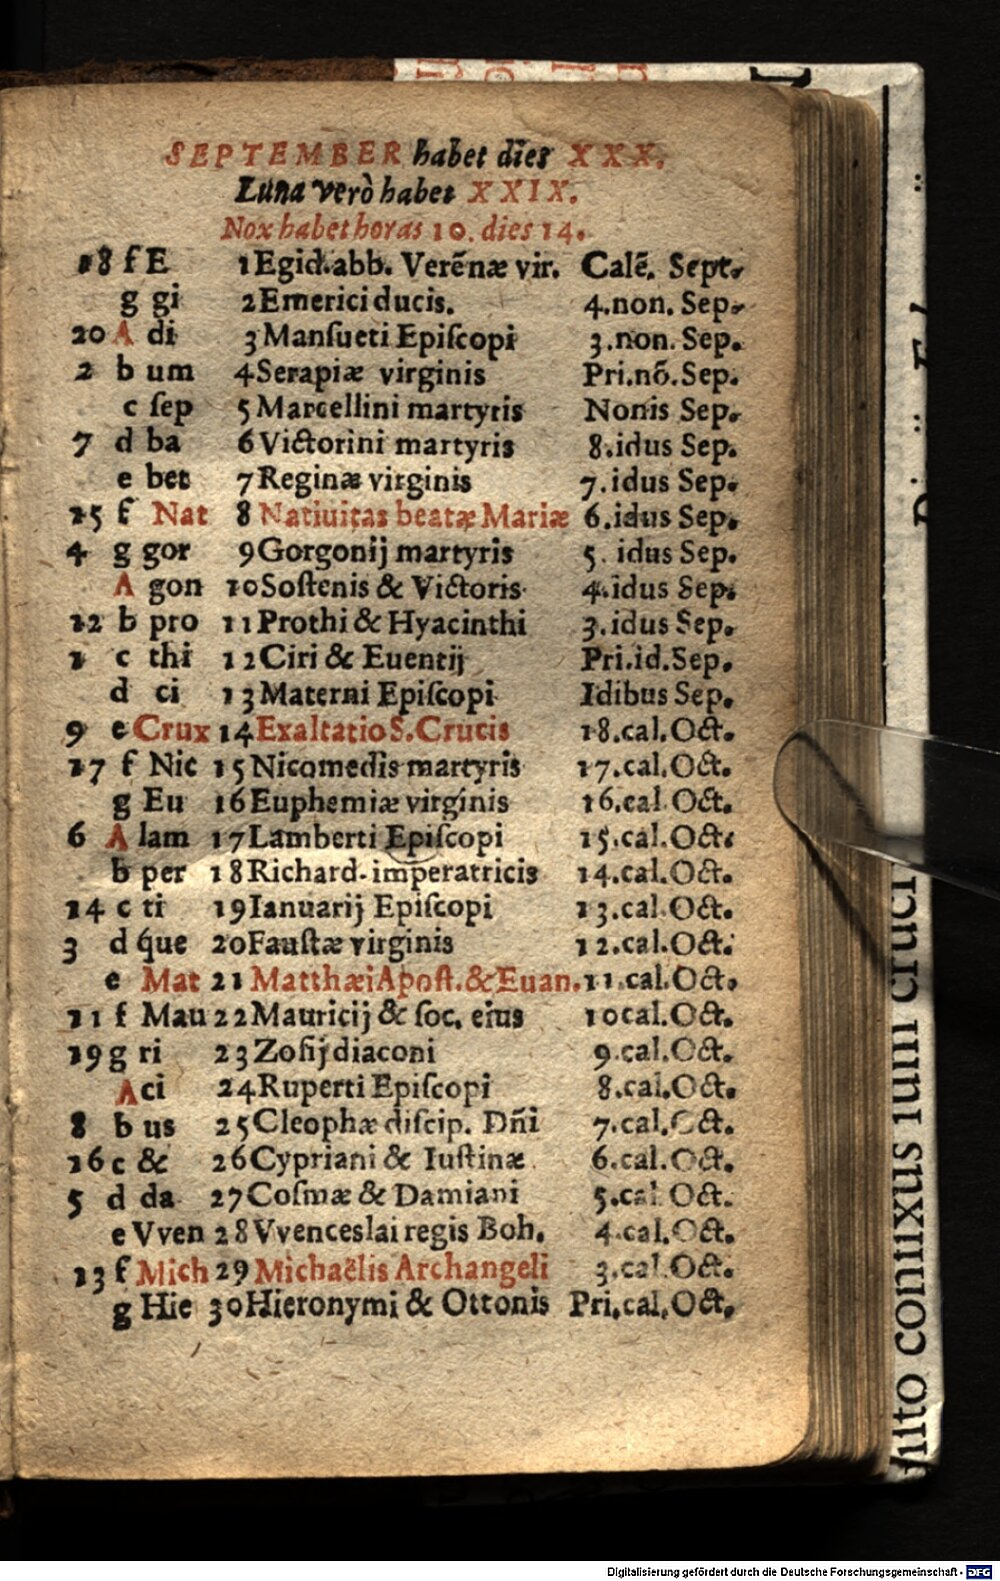 SEPTEMBER habet dies XXX.
Luna verò habet XXIX.
Nox habet horas 10. dies 14.
18 f E 1 Egid. abb. Verẽnæ vir. Calẽ. Sept.
g gi 2 Emerici ducis. 4. non. Sep.
20 A di 3 Manſueti Epiſcopi 3. non. Sep.
2 b um 4 Serapiæ virginis Pri. nõ. Sep.
c ſep 5 Marcellini martyris Nonis Sep.
7 d ba 6 Victorini martyris 8. idus Sep.
e bet 7 Reginæ virginis 7. idus Sep.
15 f Nat 8 Natiuitas beatæ Mariæ 6. idus Sep.
4 g gor 9 Gorgonij martyris 5. idus Sep.
A gon 10 Soſtenis & Victoris 4. idus Sep.
12 b pro 11 Prothi & Hyacinthi 3. idus Sep.
1 c thi 12 Ciri & Euentij Pri. id. Sep.
d ci 13 Materni Epiſcopi Idibus Sep.
9 e Crux 14 Exaltatio S. Crucis 18. cal. Oct.
17 f Nic 15 Nicomedis martyris 17. cal. Oct.
g Eu 16 Euphemiæ virginis 16. cal. Oct.
6 A lam 17 Lamberti Epiſcopi 15. cal. Oct.
b per 18 Richard. imperatricis 14. cal. Oct.
14 c ti 19 Ianuarij Epiſcopi 13. cal. Oct.
3 d q́ue 20 Fauſtæ virginis 12. cal. Oct.
e Mat 21 Matthæi Apoſt. & Euan. 11. cal. Oct.
11 f Mau 22 Mauricij & ſoc. eius 10 cal. Oct.
19 g ri 23 Zoſij diaconi 9. cal. Oct.
A ci 24 Ruperti Epiſcopi 8. cal. Oct.
8 b us 25 Cleophæ diſcip. Dñi 7. cal. Oct.
16 c & 26 Cypriani & Iuſtinæ 6. cal. Oct.
5 d da 27 Coſmæ & Damiani 5. cal. Oct.
e Vven 28 Vvenceslai regis Boh. 4. cal. Oct.
13 f Mich 29 Michaëlis Archangeli 3. cal. Oct.
g Hie 30 Hieronymi & Ottonis Pri. cal. Oct.
connixus
Digitalisierung gefördert durch die Deutsche Forschungsgemeinschaft - DFG